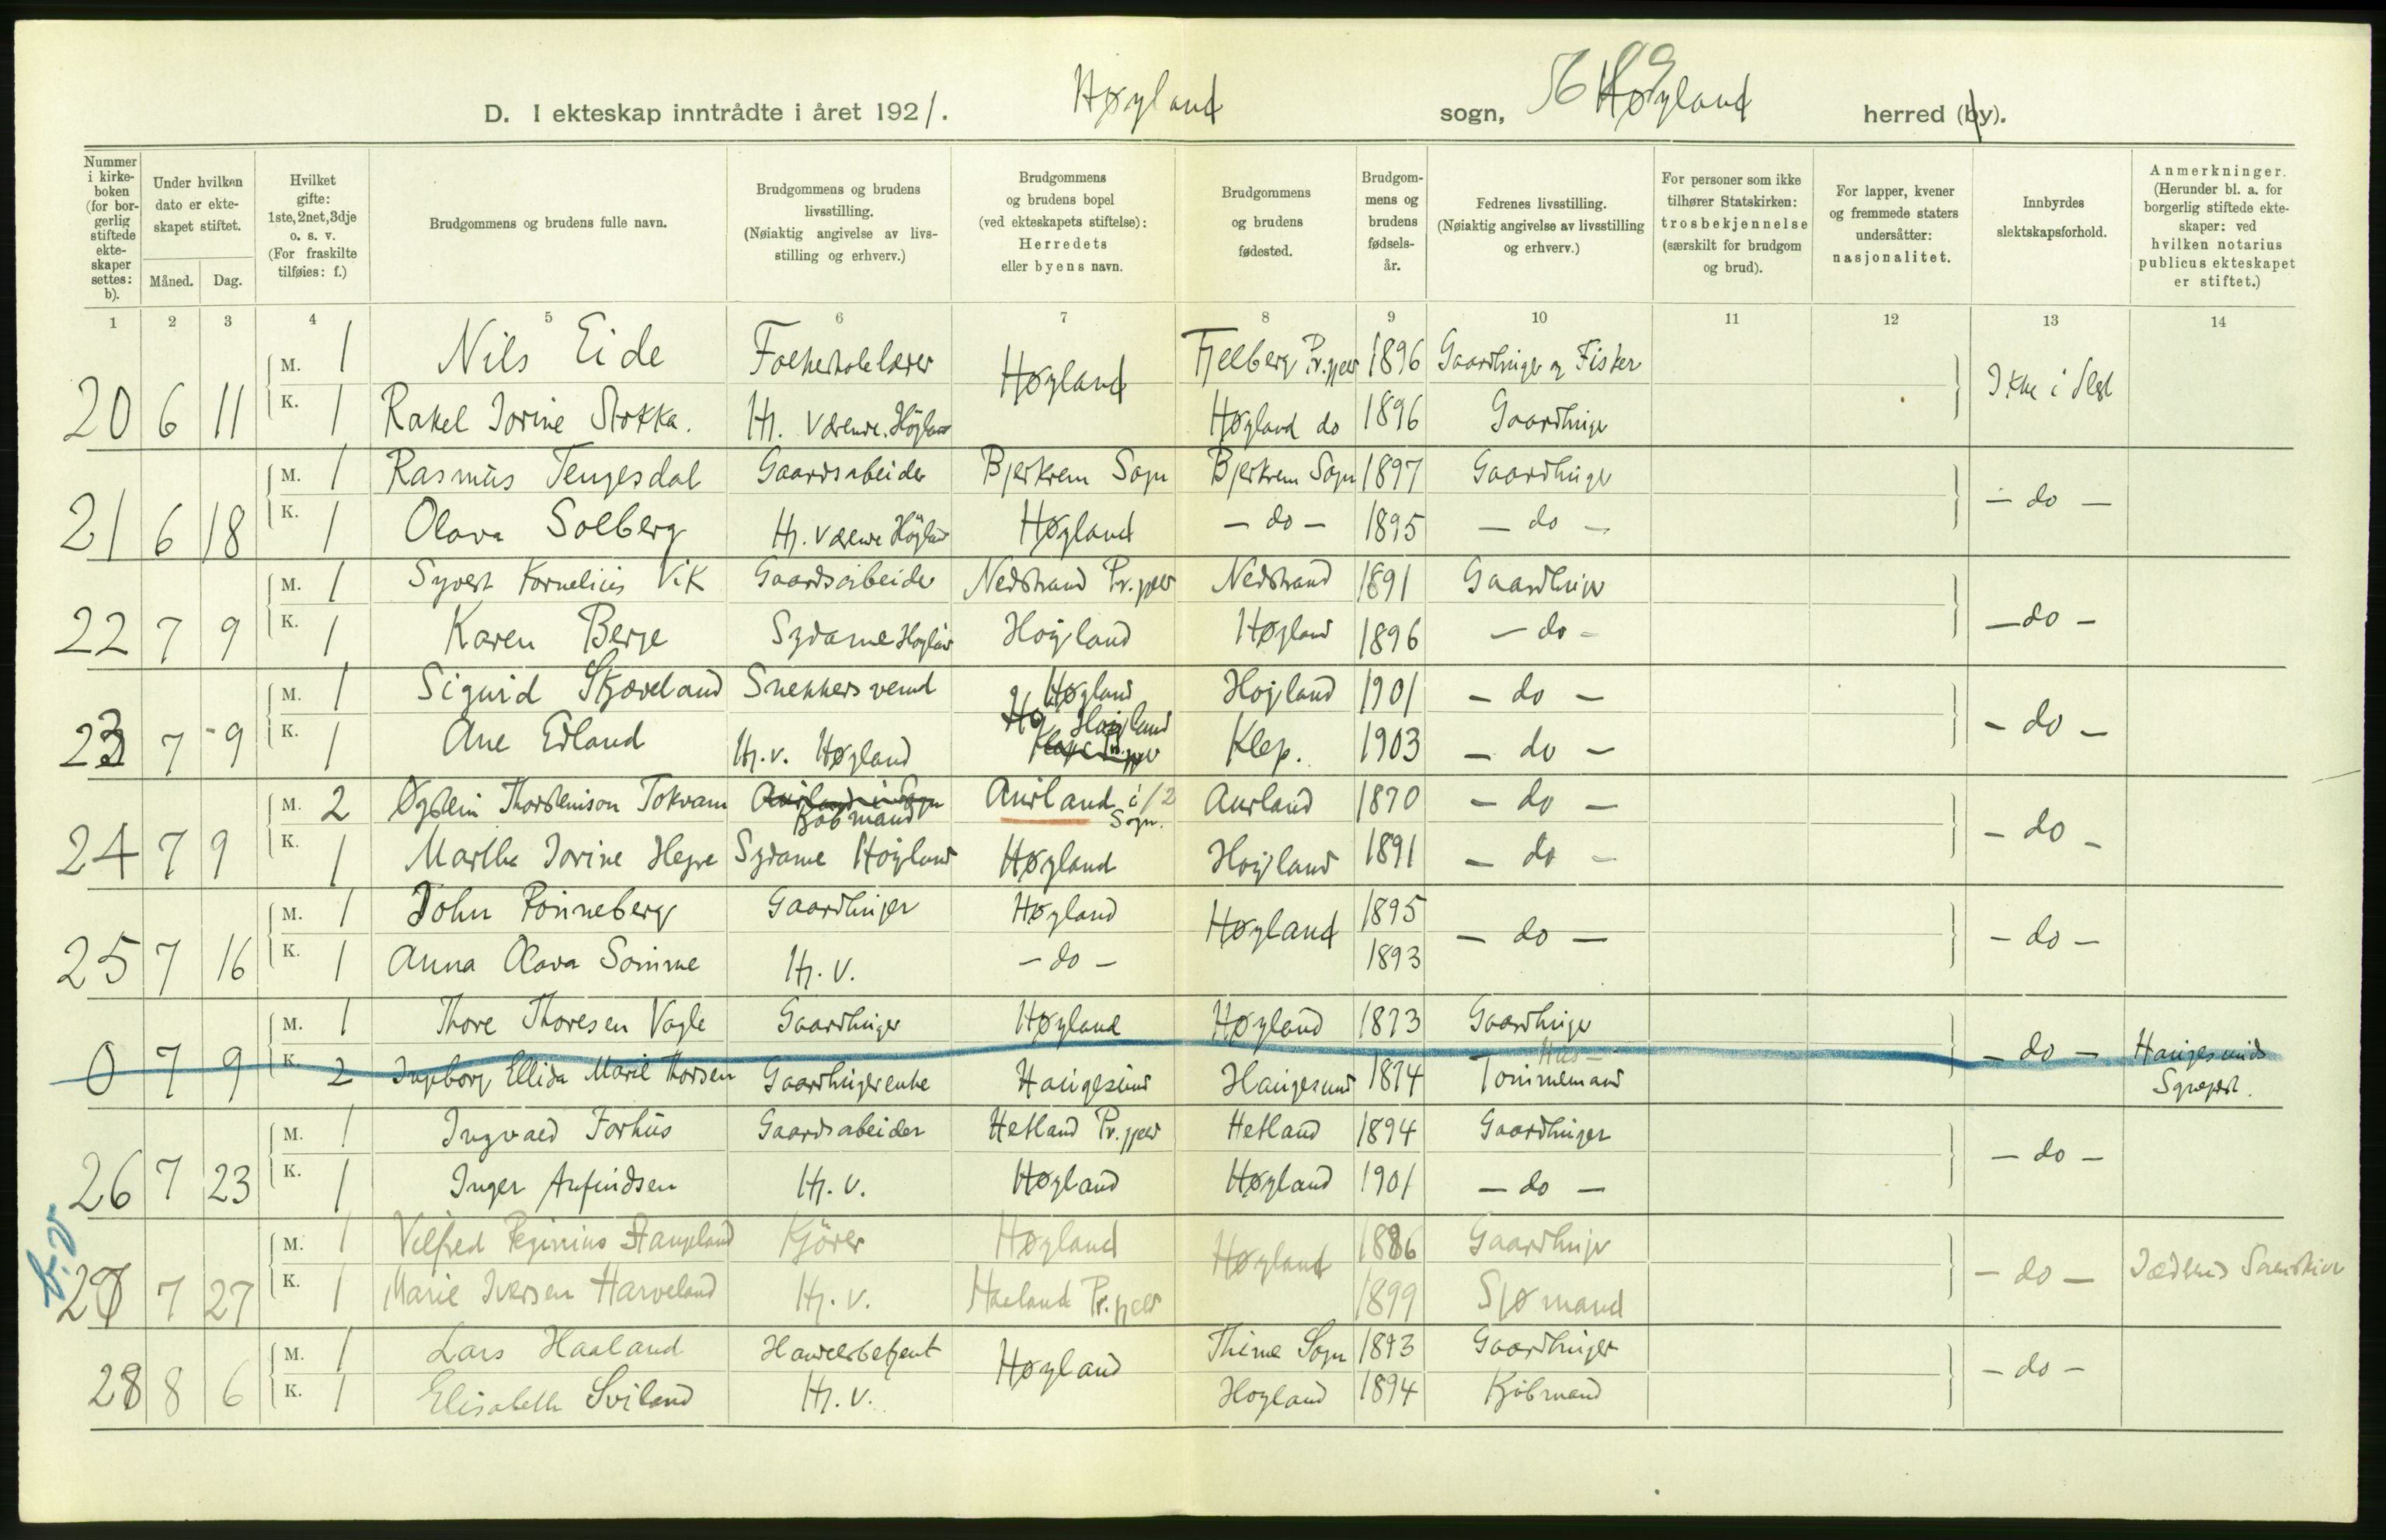 D. I ekteskap inntrådte i året 1921. Høyland sogn, 56 Høyland herred (by).
Nummer i kirke-boken (for bor-gerlig stiftede ekte-skaper settes: b).
Under hvilken dato er ekte-skapet stiftet.
Måned. Dag.
Hvilket gifte: 1ste, 2net, 3dje o. s. v. (For fraskilte tilføies: f.)
Brudgommens og brudens fulle navn.
Brudgommens og brudens livsstilling. (Nøiaktig angivelse av livs-stilling og erhverv.)
Brudgommens og brudens bopel (ved ekteskapets stiftelse): Herredets eller byens navn.
Brudgommens og brudens fødested.
Brudgom-mens og brudens fødsels-år.
Fedrenes livsstilling. (Nøiaktig angivelse av livsstilling og erhverv.)
For personer som ikke tilhører Statskirken: trosbekjennelse (særskilt for brudgom og brud).
For lapper, kvener og fremmede staters undersåtter: nasjonalitet.
Innbyrdes slektskapsforhold.
Anmerkninger. (Herunder bl. a. for borgerlig stiftede ekte-skaper: ved hvilken notarius publicus ekteskapet er stiftet.)
1 2 3 4 5 6 7 8 9 10 11 12 13 14
M. 1 Nils Eide Folkeskolelærer Høyland Fjelberg Pr.gjeld 1896 Gaardbruger og Fisker
20 6 11 K. 1 Rakel Jorine Stokka. Hj. værende. Höyland Høyland do 1896 Gaardbruger Ikke i Slegt
M. 1 Rasmus Tengesdal Gaardsarbeider Bjerkrem Sogn Bjerkrem Sogn 1897 Gaardbruger
21 6 18 K. 1 Olava Solberg Hj. værende Höyland Høyland - do - 1895 - do - - do -
M. 1 Syvert Kornelius Vik Gaardsarbeider Nedstrand Pr.gjeld Nedstrand 1891 Gaardbruger
22 7 9 K. 1 Karen Berge Sydame Høyland Høyland Høyland 1896 - do - - do -
M. 1 Sigurd Skjæveland Snekkersvend Høyland Høyland 1901 - do -
23 7 9 K. 1 Ane Edland Hj.v. Høyland Høyland Klep. 1903 - do - - do -
M. 2 Øystein Thorsteinson Tokvam Kjøbmand Aurland i Sogn. 1/2 Aurland 1870 - do -
24 7 9 K. 1 Martha Jorine Hegre Sydame Høyland Høyland Høyland 1891 - do - - do -
M. 1 John Rönneberg Gaardbruger Høyland Høyland 1895 - do -
25 7 16 K. 1 Anna Olava Sömme Hj.v. - do - 1893 - do -
M. 1 Thore Thoresen Vagle Gaardbruger Høyland Høyland 1873 Gaardbruger
0 7 9 K. 2 Ingborg Ellida Marie Thorsen Gaardbrugerenke Haugesund Haugesund 1874 Hus- Tömmermand - do - Haugesunds Sogneprest.
M. 1 Ingvald Forhus Gaardsarbeider Hetland Pr.gjeld Hetland 1894 Gaardbruger
26 7 23 K. 1 Inger Arfindsen Hj.v. Høyland Høyland 1901 - do - - do -
M. 1 Vilfred Reginius Stangeland Kjörer Høyland Høyland 1886 Gaardbruger
b.v 27 7 27 K. 1 Marie Iversen Harveland Hj.v. Haaland Pr.gjeld 1899 Sjømand - do - Jæderens Sorenskriver
M. 1 Lars Haaland Handelsbetjent Høyland Thime Sogn 1893 Gaardbruger
28 8 6 K. 1 Elisabeth Sviland Hj.v. Høyland 1894 Kjöbmand - do -